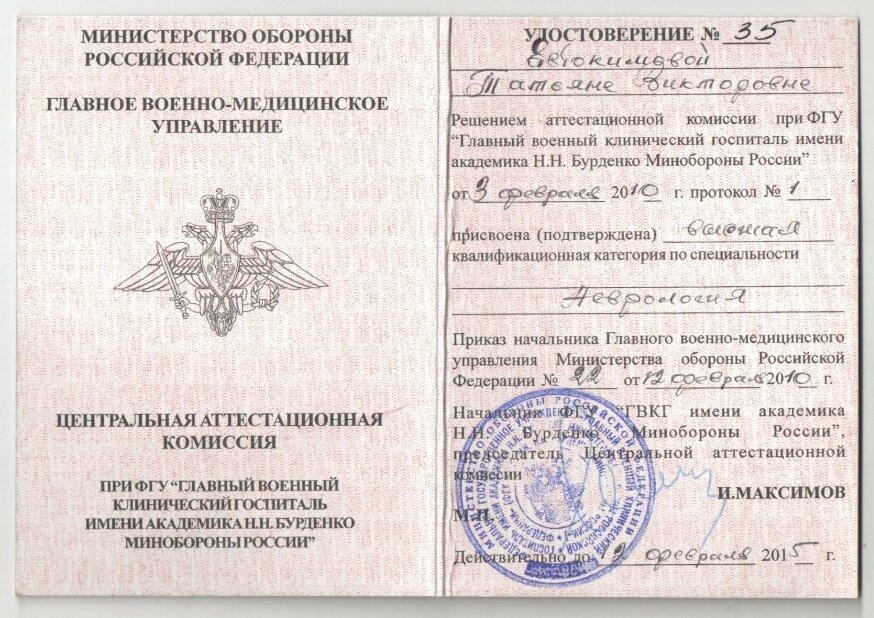 МИНИСТЕРСТВО ОБОРОНЫ
РОССИЙСКОЙ ФЕДЕРАЦИИ
ГЛАВНОЕ ВОЕННО-МЕДИЦИНСКОЕ
УПРАВЛЕНИЕ
ЦЕНТРАЛЬНАЯ АТТЕСТАЦИОННАЯ
КОМИССИЯ
ПРИ ФГУ “ГЛАВНЫЙ ВОЕННЫЙ
КЛИНИЧЕСКИЙ ГОСПИТАЛЬ
ИМЕНИ АКАДЕМИКА Н.Н. БУРДЕНКО
МИНОБОРОНЫ РОССИИ”
УДОСТОВЕРЕНИЕ № 35
Евдокимовой
Татьяне Викторовне
Решением аттестационной комиссии при ФГУ
“Главный военный клинический госпиталь имени
академика Н.Н. Бурденко Минобороны России”
от 3 февраля 2010 г. протокол № 1
присвоена (подтверждена) высшая
квалификационная категория по специальности
Неврология
Приказ начальника Главного военно-медицинского
управления Министерства обороны Российской
Федерации № 22 от 12 февраля 2010 г.
Начальник ФГУ “ГВКГ имени академика
Н.Н. Бурденко Минобороны России”,
председатель Центральной аттестационной
комиссии
И.МАКСИМОВ
М.П.
Действительно до 12 февраля 2015 г.